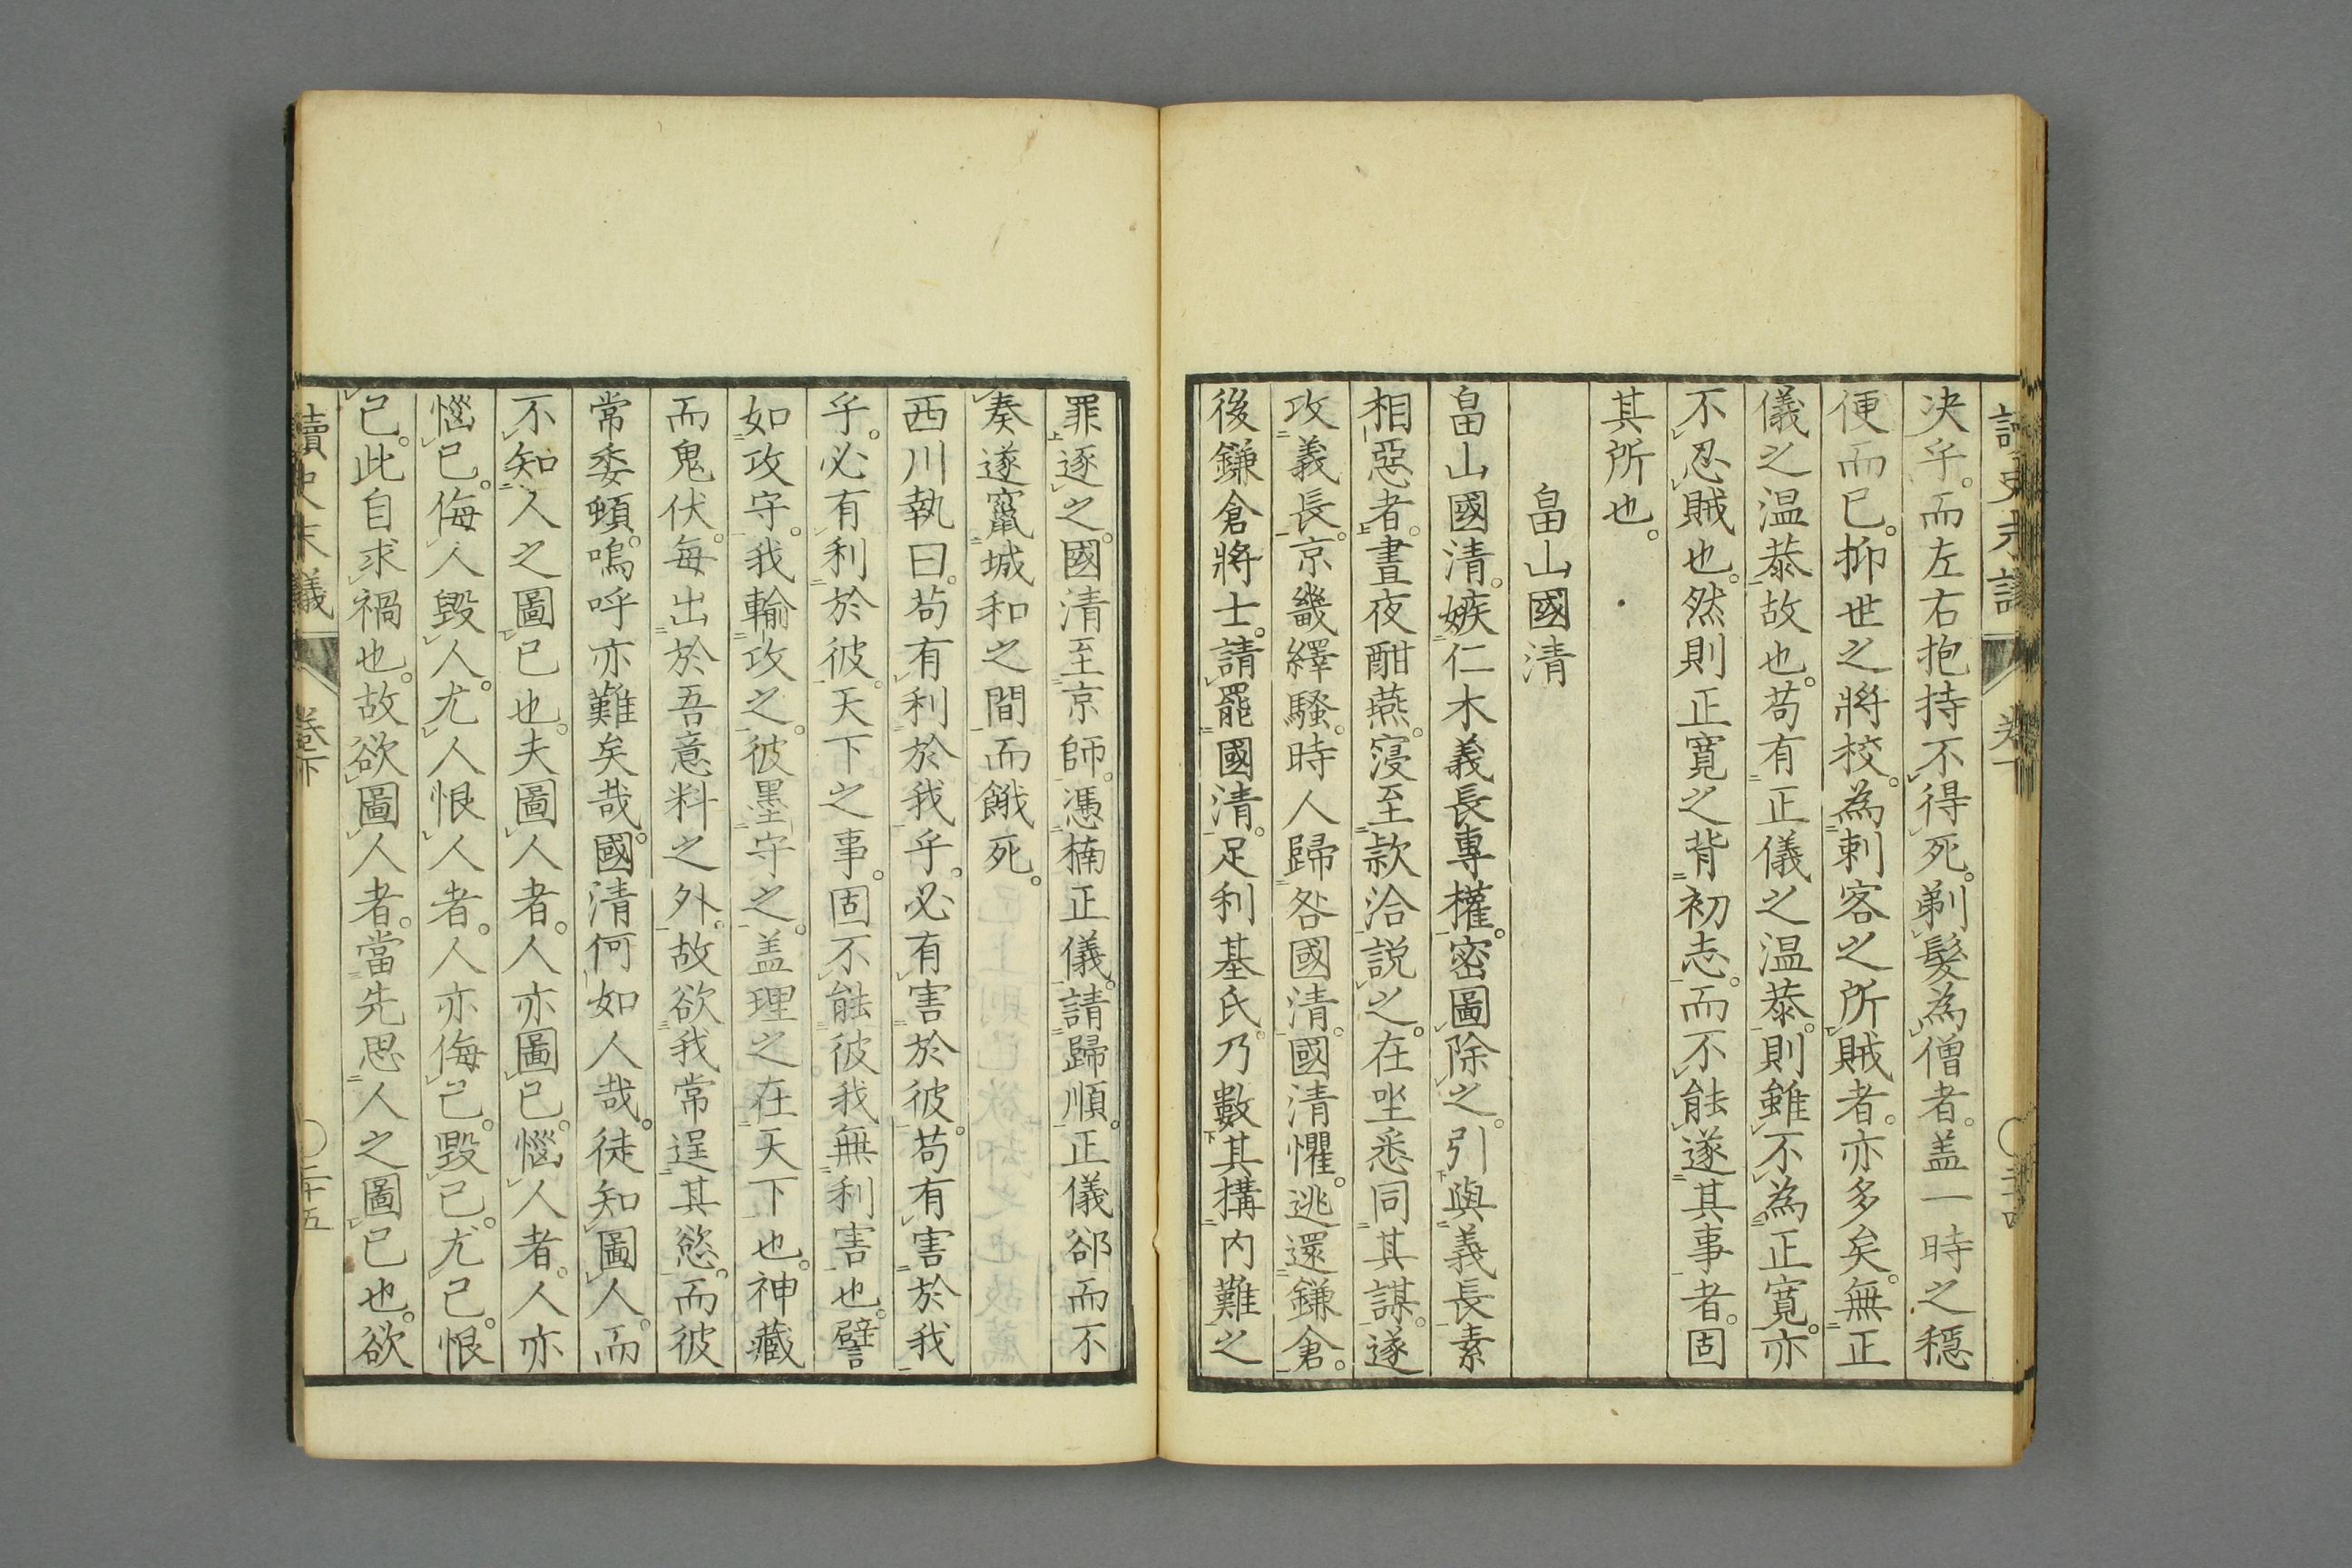 決乎。而左右抱持不得死。剃髮為僧者。盖一時之穩
便而已。抑世之將校。為刺客之所賊者。亦多矣。無正
儀之温恭故也。苟有正儀之温恭。則雖不為正寛。亦
不忍賊也。然則正寛之背初志。而不能遂其事者。固
其所也。
畠山國清
畠山國清。嫉仁木義長專權。密圖除之。引與義長素
相惡者。晝夜酣燕。寖至款洽說之。在坐悉同其謀。遂
攻義長。京畿繹騷。時人歸咎國清。國清懼。逃還鎌倉。
後鎌倉將士。請罷國清。足利基氏乃數其搆内難之
罪逐之。國清至京師。憑楠正儀。請歸順。正儀郤而不
奏遂竄城和之間而餓死。
西川執曰。苟有利於我乎。必有害於彼。苟有害於我
乎。必有利於彼。天下之事。固不能彼我無利害也。譬
如攻守。我輸攻之。彼墨守之。盖理之在天下也。神藏
而鬼伏。每出於吾意料之外。故欲我常逞其慾。而彼
常委頓。嗚呼亦難矣哉。國清何如人哉。徒知圖人。而
不知人之圖已也。夫圖人者。人亦圖已。惱人者。人亦
惱已。侮人毀人。尤人恨人者。人亦侮已。毀已。尤已。恨
已。此自求禍也。故欲圖人者。當先思人之圖已也。欲
讀史末議
卷下
二十五